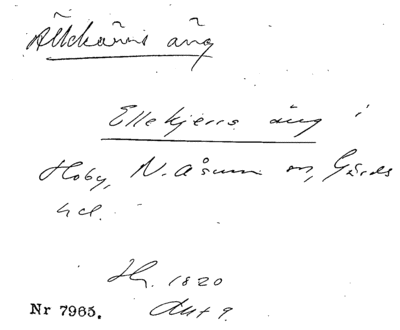 Ällekärrs äng
Ellekjerrs äng i
Hoby, N. Åsum sn, Gärds
hd.
1820
Akt 9.
Nr 7965.